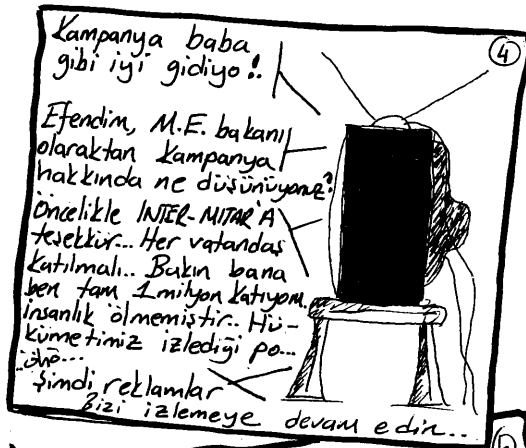 4
Kampanya baba
gibi iyi gidiyo!.
Efendim, M.E. bakanı
olaraktan kampanya
hakkında ne düşünüyonuz?
Öncelikle INTER-MITAR'A
teşekkür... Her vatandaş
katılmalı.. Bakın bana
ben tam 1 milyon katıyom.
insanlık ölmemiştir.. Hü-
kümetimiz izlediği po...
..öhö...
Şimdi reklamlar
Bizi izlemeye devam edin...